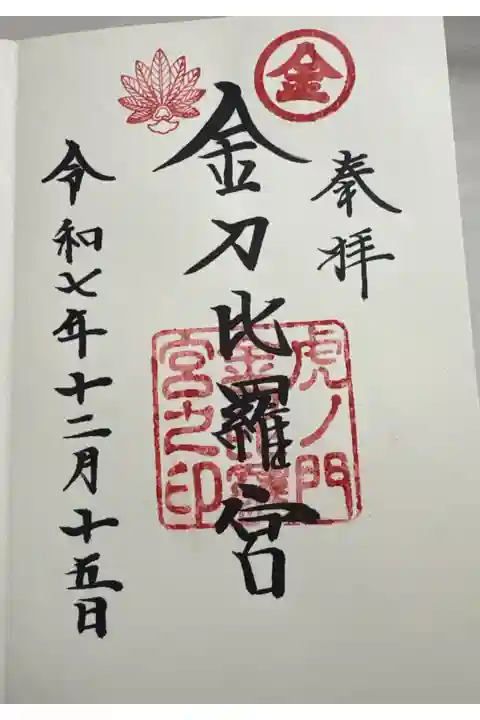 奉拝
金
金刀比羅宮
虎ノ門
金刀比羅
宮之印
令和七年十二月十五日